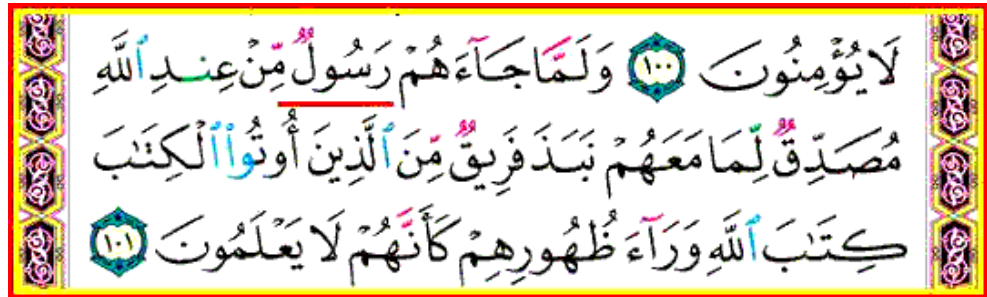 لَا يُؤْمِنُونَ ١٠٠ وَلَمَّا جَآءَهُمْ رَسُولٌ مِّنْ عِندِ ٱللَّهِ
مُصَدِّقٌ لِّمَا مَعَهُمْ نَبَذَ فَرِيقٌ مِّنَ ٱلَّذِينَ أُوتُوا۟ ٱلْكِتَٰبَ
كِتَٰبَ ٱللَّهِ وَرَآءَ ظُهُورِهِمْ كَأَنَّهُمْ لَا يَعْلَمُونَ ١٠١